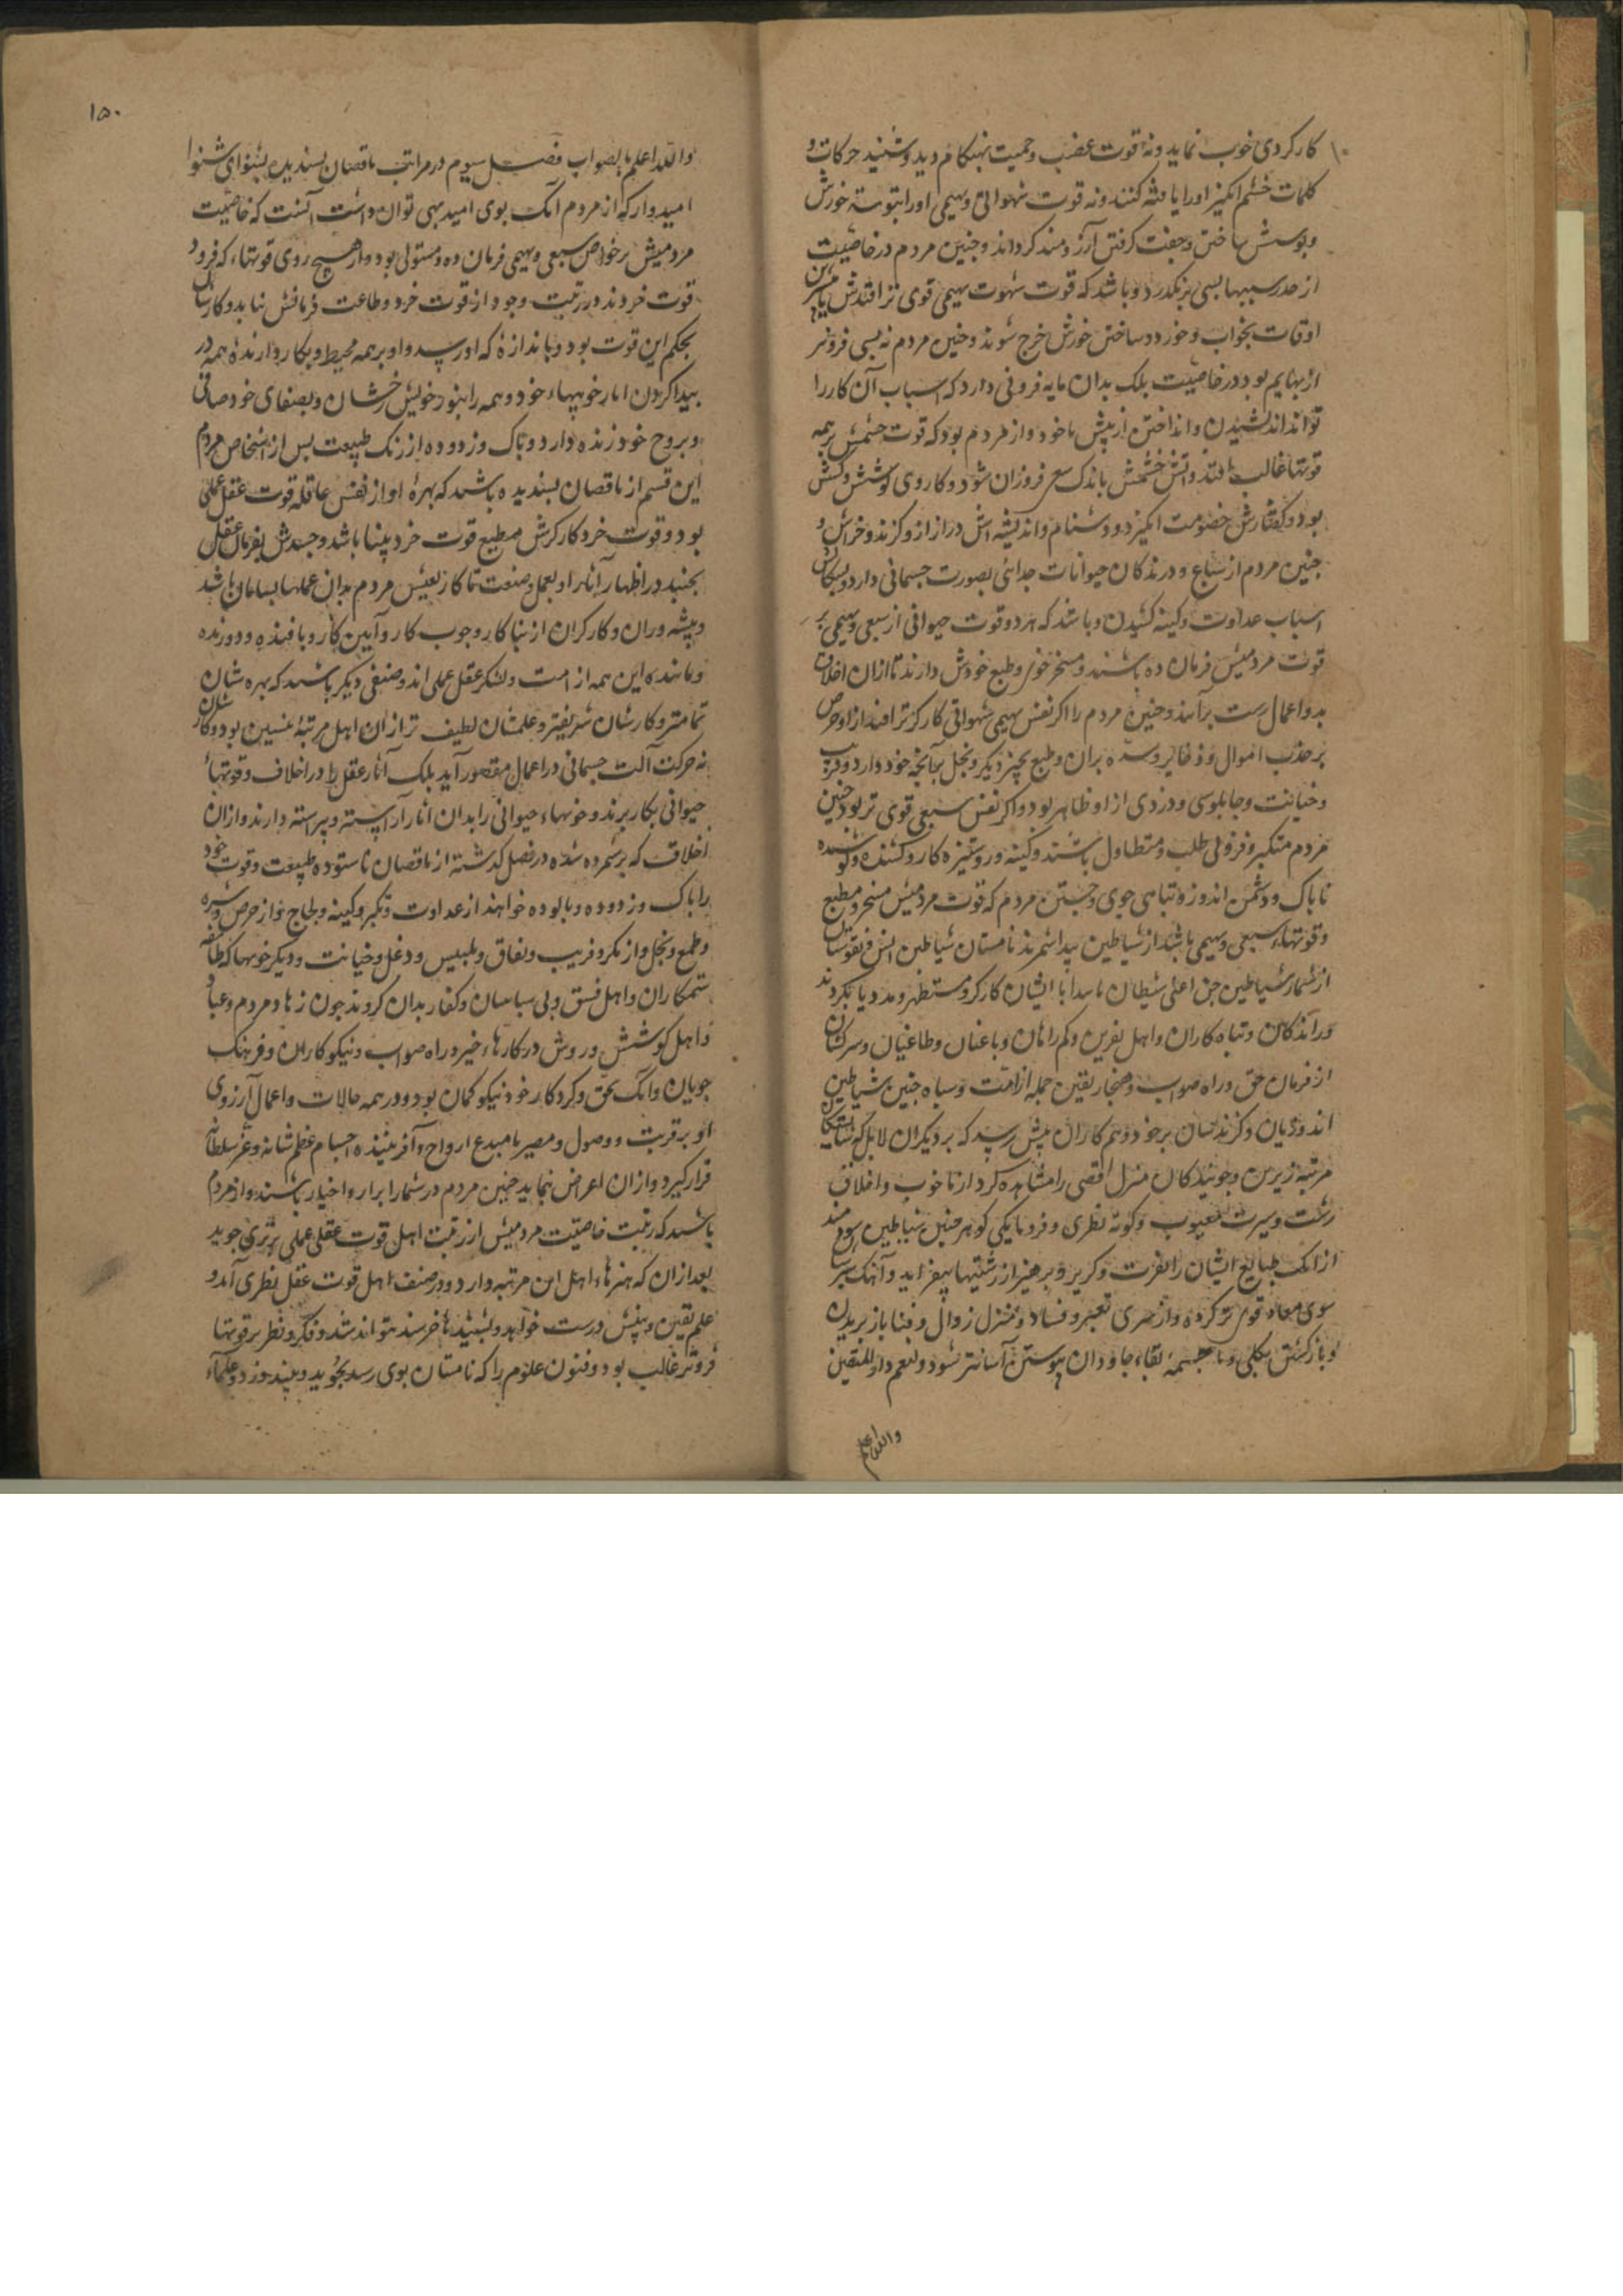 کارکردی خوب نماید و نه قوت غضب و حمیت بهنکام دید و شنید حرکات و
کلمات خشم انکیز اورا یا فتنه کنند و نه قوت شهوانی و بهیمی اورا خورش
و پوشش ساختن و جفت کرفتن آرزومند کرداند و چنین مردم در خاصیت
از حد بسی برنکذرد و باشد که قوت شهوت بهیمی قوی تر افتدش
اوقات بخواب و خورد و ساختن خورش خرج شوند و چنین مردم نه بسی فروتر
از بهایم بود در خاصیت بلک بدان مایه فزونی دارد که اسباب آن کار را
تواند اندیشیدن و انداختن از پیش با خود و از مردم بود که قوت خشمش بر همه
قوتها غالب افتد و آتش خشمش باندک فروزان شود و کار وی کوشش و کشش
بود و کفتارش خصومت انکیز و دشنام و اندیشه‌اش دراز از و کزند و خراش و
چنین مردم از سباع و درندکان حیوانات جدائی بصورت جسمانی دارد
اسباب عداوت و کینه کشیدن و باشد که هر دو قوت حیوانی از سبعی و بهیمی بر
قوت مردمیش فرمان ده باشند و مسخر خوی و طبع خودش دارند تا ازان اخلاق
بد و اعمال زشت برآیند و چنین مردم را اکر نفس بهیمی شهوانی کارکرتر افتد از او حرص
بر جذب اموال و ذخایر و بران و طمع بچیز دیکر و بخل بآنچه خود دارد و فریب
و خیانت و چاپلوسی و دزدی از او ظاهر بود و اکر نفس سبعی قوی تر بود چنین
مردم متکبر و فزونی طلب و متطاول باشند و کینه ور و ستیزه کار و کشنده و
ناپاک و دشمن اندوز و تباهی جوی و جستن مردم که قوت مردمیش مسخر و مطیع
قوتهاء سبعی و بهیمی باشد از شیاطین پیدا شمرند تا مستان شیاطین انس
از شمار شیاطین جن اعنی شیطان ناپیدا با ایشان کارکر و مستظهر و مددیاب کردند
و راندکان و تباه کاران و اهل نفرین و کم راهان و باغیان و طاغیان و سرکشان
از فرمان حق و راه صواب و هنجار یقین جمله از امت و سپاه چنین شیاطین
اند و زیان و کزندشان بر خود و هم کاران پیش رسد که بر دیکران لابل که
مرتبه زیرین و جویندکان منزل اقصی را مشاهده کردار ناخوب و اخلاق
زشت و سیرت معیوب و کوته نظری و فرومایکی کوهر چنین شیاطین سودمند
از آنک طبایع ایشان را نفرت و کریز و پرهیز از زشتیها بیفزاید و آهنک
سوی معاد قوی تر کردد و از سرای تغیر و فساد و منزل زوال و فنا باز بریدن
و بازکشتن بکلی و با چشمه بقاء جاودان پیوستن آسانتر شود و لنعم دار المتقین
والله اعلم
۱۵۰
والله اعلم بالصواب فصل سیوم در مراتب ناقصان پسندیده بشنو ای شنوا
امیدوار که از مردم آنک بوی امید بهی توان داشت آنست که خاصیت
مردمیش بر خواص سبعی و بهیمی فرمان ده و مستولی بود و از هیچ روی قوتهاء که فرود
قوت خردند در رتبت وجود از قوت خرد و طاعت فرمانش نتابد و کارشان
بحکم این قوت بود و باندازهٔ که اورسد و او بر همه محیط و بکار دارندهٔ همه در
پیدا کردن آثار خوبیهاء خود و همه را بنور خویش رخشان و بصفای خود صافی
و بروح خود زنده دارد و پاک و زدوده از زنک طبیعت پس از اشخاص مردم
این قسم از ناقصان پسندیده باشند که بهرهٔ او از نفس عاقله قوت عقل عملی
بود و قوت خرد کارکرش مطیع قوت خرد بینا باشد و جسدش بفرمان عقل
بجنبد در اظهار آثار او بعمل و صنعت تا کار تعیش مردم بدان عملها بسامان باشد
و پیشه وران و کارکران از بنا کار و چوب کار و آهن کار و بافنده و دوزنده
و مانند این همه از امت و لشکر عقل عملی اند و صنفی دیکر باشند که بهره شان
تمامتر و کارشان شریفتر و علمشان لطیف تر از آن اهل مرتبهٔ نخستین بود و کار شان
نه حرکت آلت جسمانی در اعمال مقصور آید بلک آثار عقل را در اخلاق و قوتهاء
حیوانی بکار برند و خوبهاء حیوانی را بدان آثار آراسته و پیراسته دارند و ازان
اخلاق که برشمرده شده در فصل کذشته از ناقصان ناستوده طبیعت و قوت خود
را پاک و زدوده و پالوده خواهند از عداوت و تکبر و کینه و لجاج و از حرص و شره
و طمع و بخل و از مکر و فریب و نفاق و تلبیس و دغل و خیانت و دیکر خوبها که طائفه
ستمکاران و اهل فسق و بی سپاسان و کفار بدان کروند چون زهاد مردم و عباد
و اهل کوشش و روش در کارهاء خیر و راه صواب و نیکوکاران و فرهنک
جویان و آنک بحق و کردکار خود نیکو کمان بود و در همه حالات و اعمال آرزوی
او بر قربت و وصول و مصیر با مبدع ارواح و آفریننده اجسام عظم شانه و عز سلطانه
قرار کیرد و از آن اعراض ننماید چنین مردم در شمار ابرار و اخیار باشند و از مردم
باشند که رتبت خاصیت مردمیش از رتبت اهل قوت عقلی عملی برتری جوید
بعد ازان که هنرهاء اهل این مرتبه دارد و در صنف اهل قوت عقل نظری آمد و
علم یقین و بینش درست خواهد و بشنیدها خرسند نتواند شد و فکر و نظر بر قوتهاء
فروتر غالب بود و فنون علوم را که نامستان بوی رسد بجوید و بپسندد و علماء